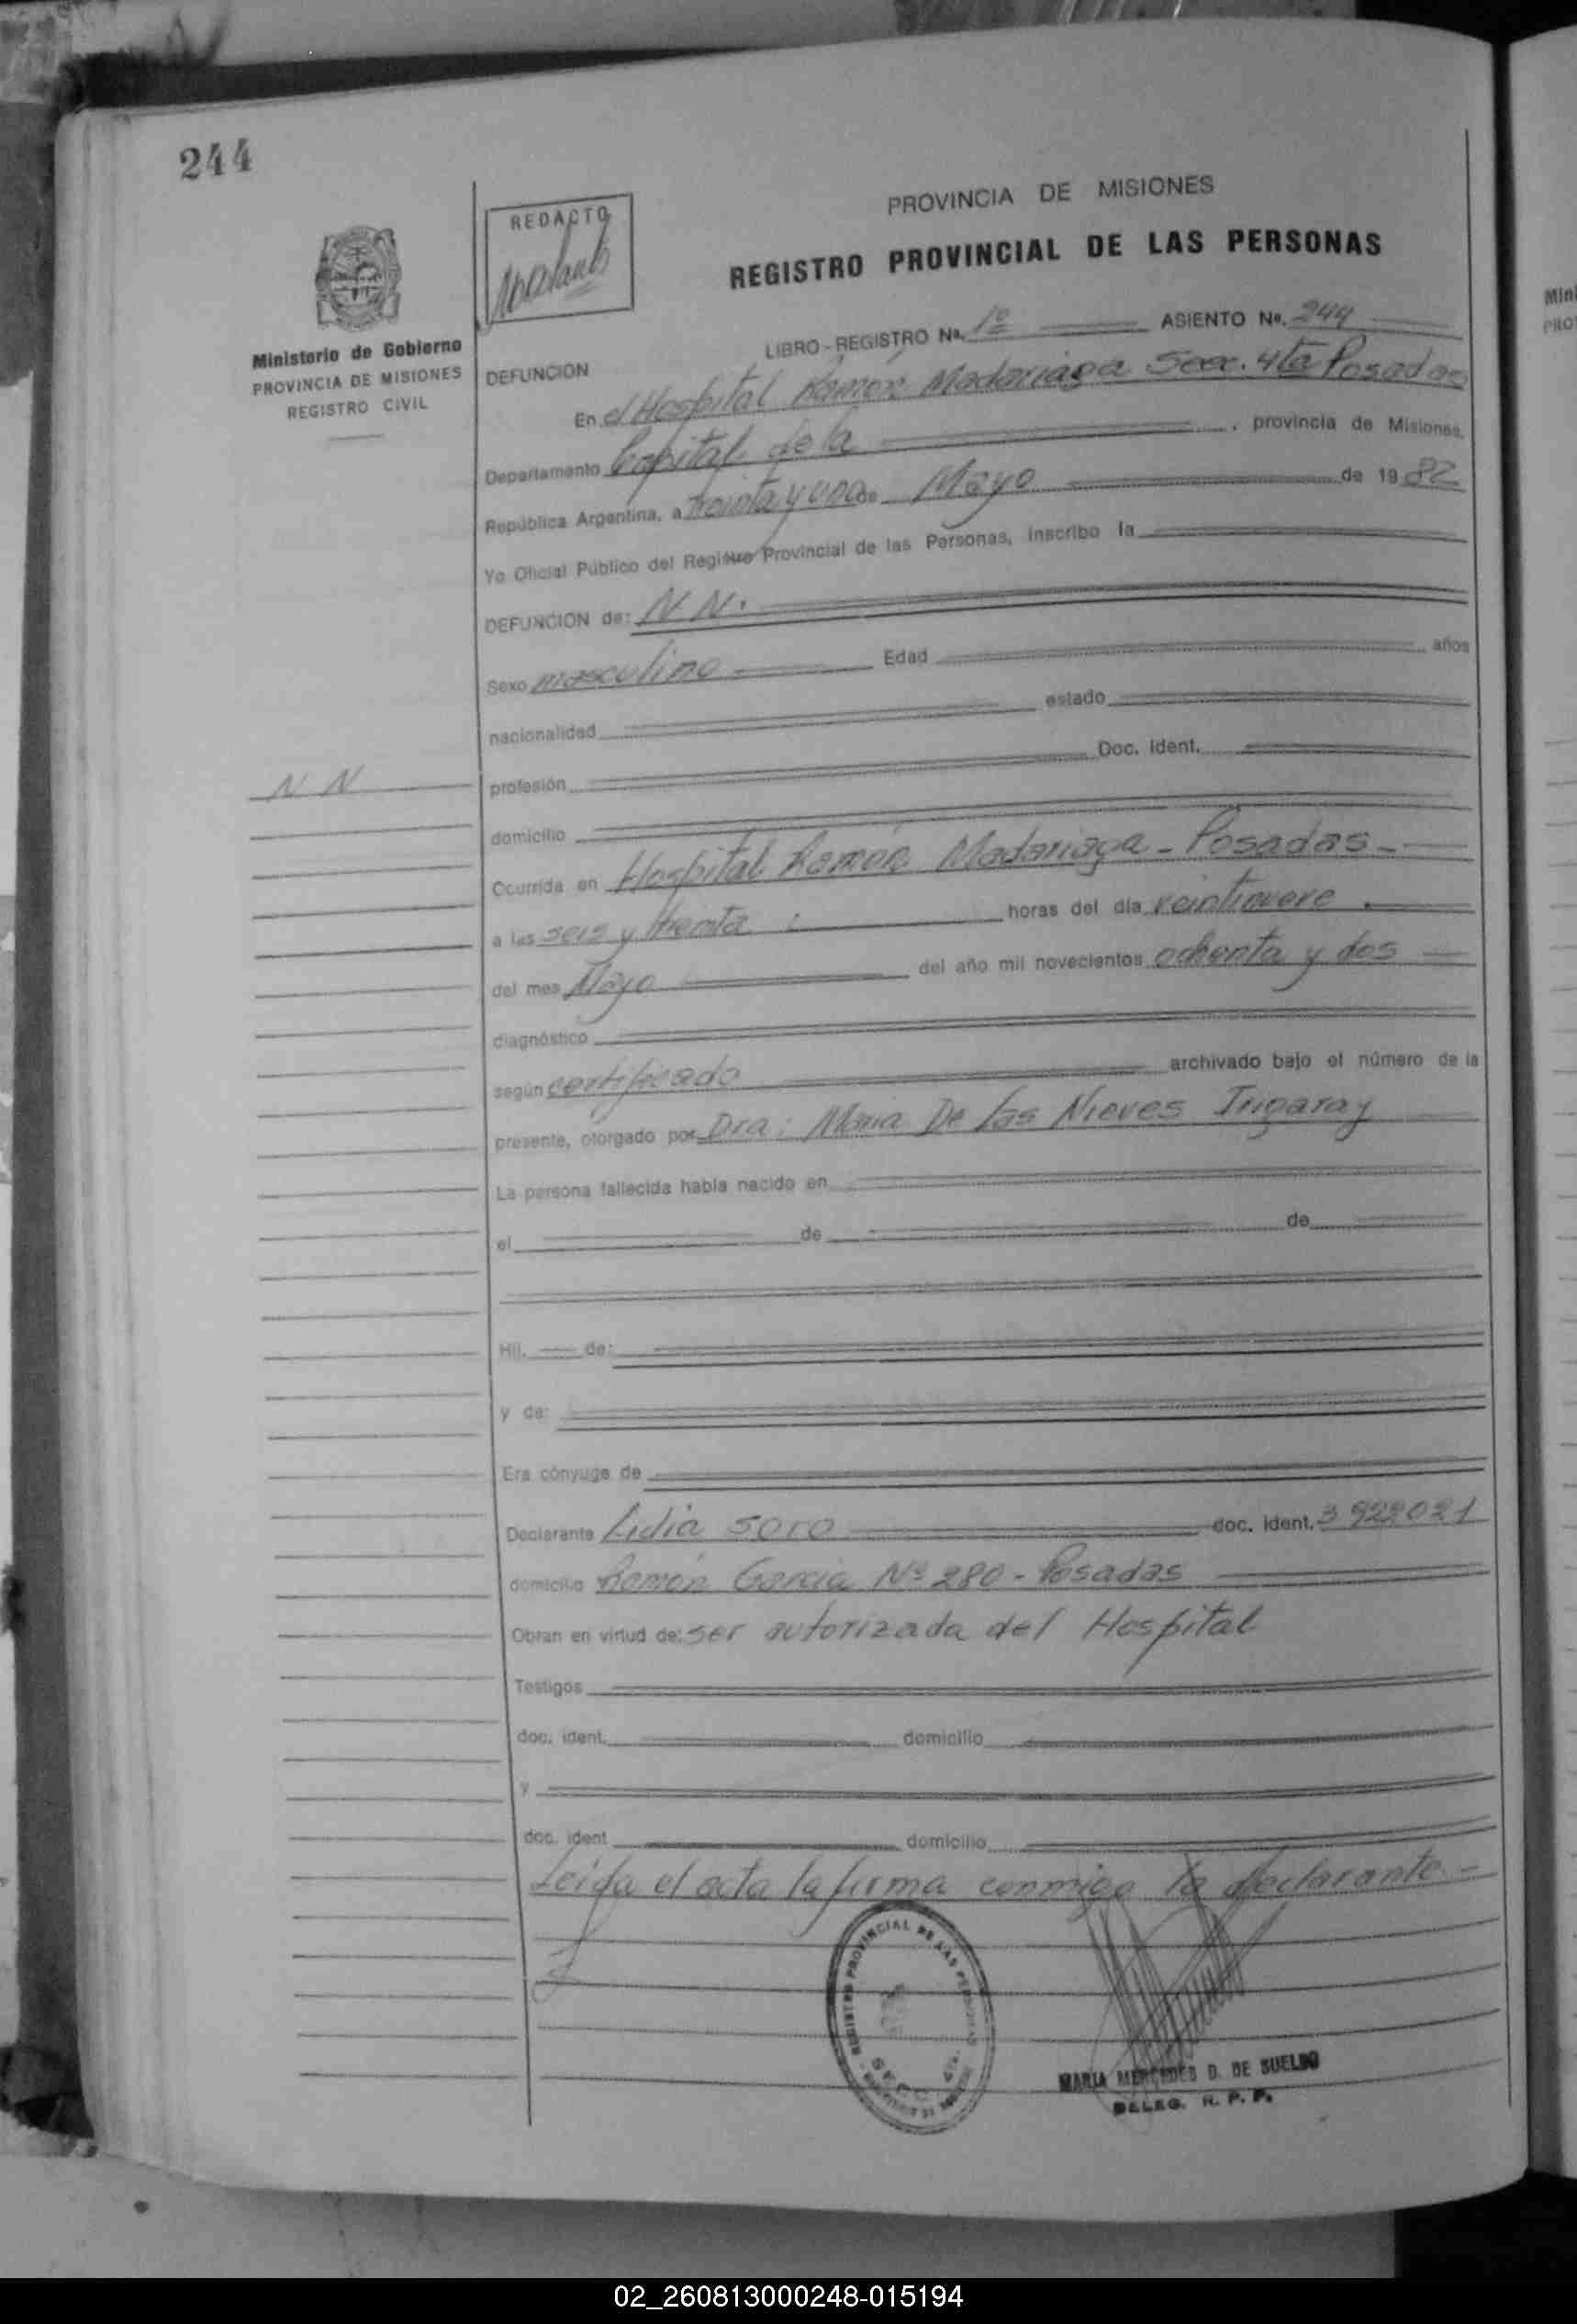 244
REDACTO
PROVINCIA DE MISIONES
REGISTRO PROVINCIAL DE LAS PERSONAS
Ministerio de Gobierno
PROVINCIA DE MISIONES
REGISTRO CIVIL
LIBRO - REGISTRO No. 1º ASIENTO No. 244
DEFUNCION
En el Hospital Ramón Madariaga Secc. 4ta Posadas
Departamento Capital de la , provincia de Misiones,
República Argentina, a treinta y uno de Mayo de 1982
Yo Oficial Público del Registro Provincial de las Personas, inscribo la
DEFUNCION de: N.N.
Sexo masculino Edad años
nacionalidad estado
N N
profesión Doc. Ident.
domicilio
Ocurrida en Hospital Ramón Madariaga - Posadas -
a las seis y treinta horas del día veintinueve
del mes Mayo del año mil novecientos ochenta y dos
diagnóstico
según certificado archivado bajo el número de la
presente, otorgado por Dra: Maria De Las Nieves Irigaray
La persona fallecida había nacido en
el de de
Hij. de:
y de:
Era cónyuge de
Declarante Lidia Soro doc. ident. 3922021
domicilio Ramón Garcia Nº 280 - Posadas
Obran en virtud de: ser autorizada del Hospital
Testigos
doc. ident. domicilio
y
doc. ident domicilio
Leida el acta la firma conmigo la declarante -
REGISTRO PROVINCIAL DE LAS PERSONAS
SECC. 4ta.
MARIA MERCEDES D. DE SUELDO
DELEG. R. P. P.
Mini
PRO
02_260813000248-015194